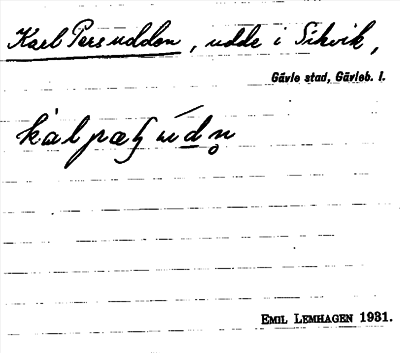 Karl Persudden, udde i Sikvik,
Gävle stad, Gävleb. l.
kàlpæʂúdn̥
EMIL LEMHAGEN 1931.